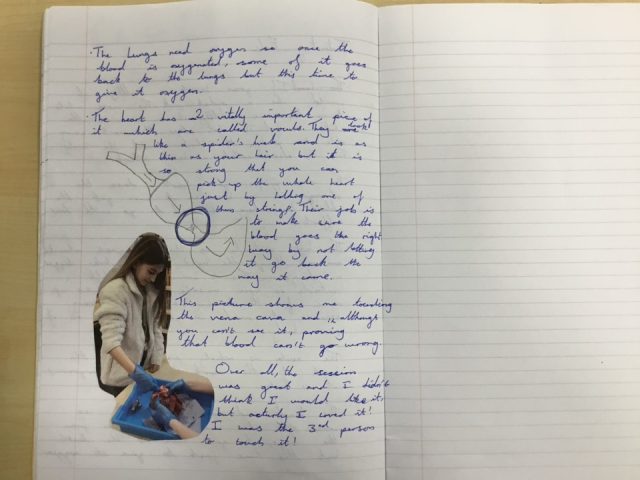 · The lungs need oxygen so once the
blood is oxygenated, some of it goes
back to the lungs but this time to
give it oxygen.
· The heart has 2 vitally important piece of
it which are called They look
like a spider's web and is as
thin as your hair but it is
so strong that you can
pick up the whole heart
just by holding one of
Their job is
to make sure the
blood goes the right
way by not letting
it go back the
way it came.
This picture shows me touching
the vena cava and although
you can't see it, proving
that blood can't go wrong.
Over all, the session
was great and I didn't
think I would like it,
but I loved it!
I was the 3rd person
to touch it!